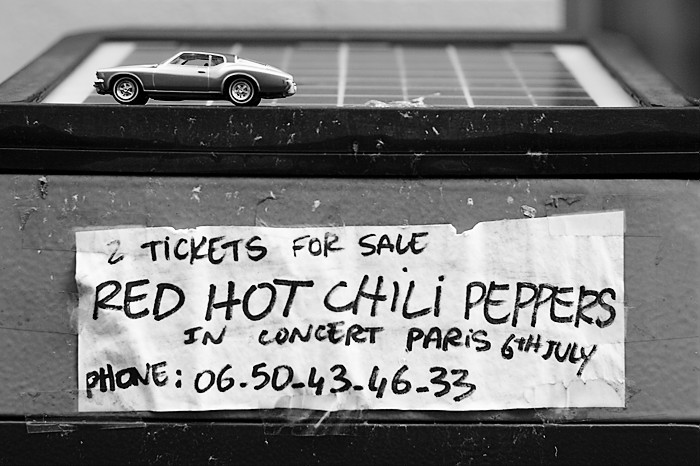 2 TICKETS FOR SALE
RED HOT CHILI PEPPERS
IN CONCERT PARIS 6TH JULY
PHONE: 06.50.43.46.33